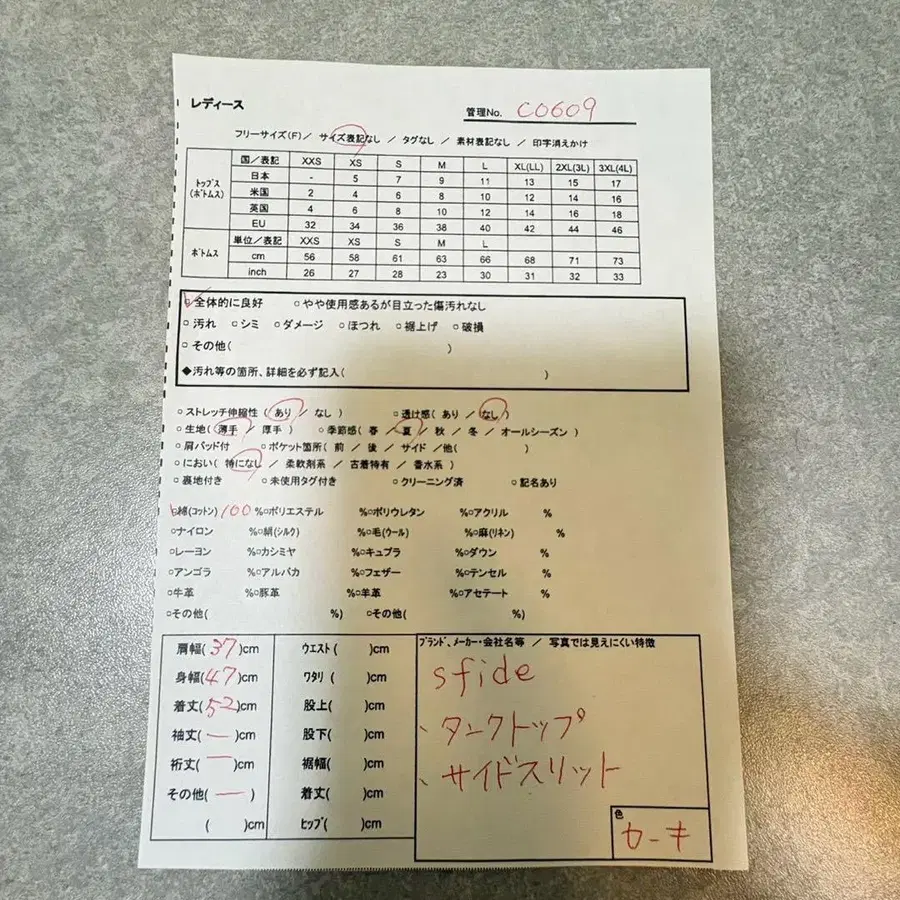 レディース
管理No. C0609
フリーサイズ(F) / サイズ表記なし / タグなし / 素材表記なし / 印字消えかけ
トップス(ボトムス) 国/表記 XXS XS S M L XL(LL) 2XL(3L) 3XL(4L)
日本 - 5 7 9 11 13 15 17
米国 2 4 6 8 10 12 14 16
英国 4 6 8 10 12 14 16 18
EU 32 34 36 38 40 42 44 46
ボトムス 単位/表記 XXS XS S M L
cm 56 58 61 63 66 68 71 73
inch 26 27 28 23 30 31 32 33
全体的に良好 ○やや使用感あるが目立った傷汚れなし
○汚れ ○シミ ○ダメージ ○ほつれ ○裾上げ ○破損
○その他( )
◆汚れ等の箇所、詳細を必ず記入( )
○ストレッチ伸縮性 ( あり / なし ) ○透け感 ( あり / なし )
○生地 ( 薄手 / 厚手 ) ○季節感 ( 春 / 夏 / 秋 / 冬 / オールシーズン )
○肩パッド付 ○ポケット箇所 ( 前 / 後 / サイド /他( )
○におい ( 特になし / 柔軟剤系 / 古着特有 / 香水系 )
○裏地付き ○未使用タグ付き ○クリーニング済 ○記名あり
綿(コットン) 100 %○ポリエステル %○ポリウレタン %○アクリル %
○ナイロン %○絹(シルク) %○毛(ウール) %○麻(リネン) %
○レーヨン %○カシミヤ %○キュプラ %○ダウン %
○アンゴラ %○アルパカ %○フェザー %○テンセル %
○牛革 %○豚革 %○羊革 %○アセテート %
○その他( %) ○その他( %)
肩幅( 37 )cm ウエスト( )cm
身幅( 47 )cm ワタリ( )cm
着丈( 52 )cm 股上( )cm
袖丈( — )cm 股下( )cm
裄丈( — )cm 裾幅( )cm
その他( — ) 着丈( )cm
( )cm ヒップ( )cm
ブランド、メーカー・会社名等 / 写真では見えにくい特徴
sfide
、タンクトップ
、サイドスリット
色
カーキ